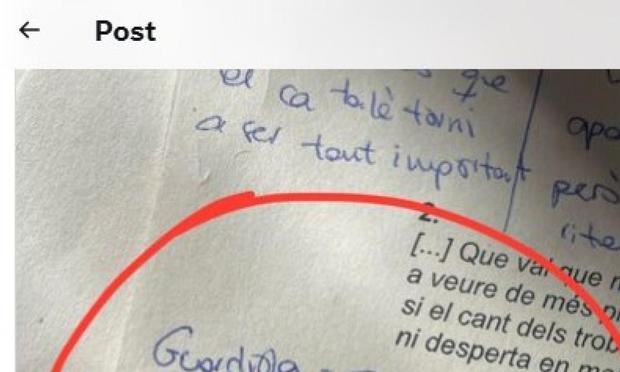 Post
que
el ca talè torni
a ser tant important
però
2.
[...] Que val que
a veure de més
si el cant dels
ni desperta en
Guardiola